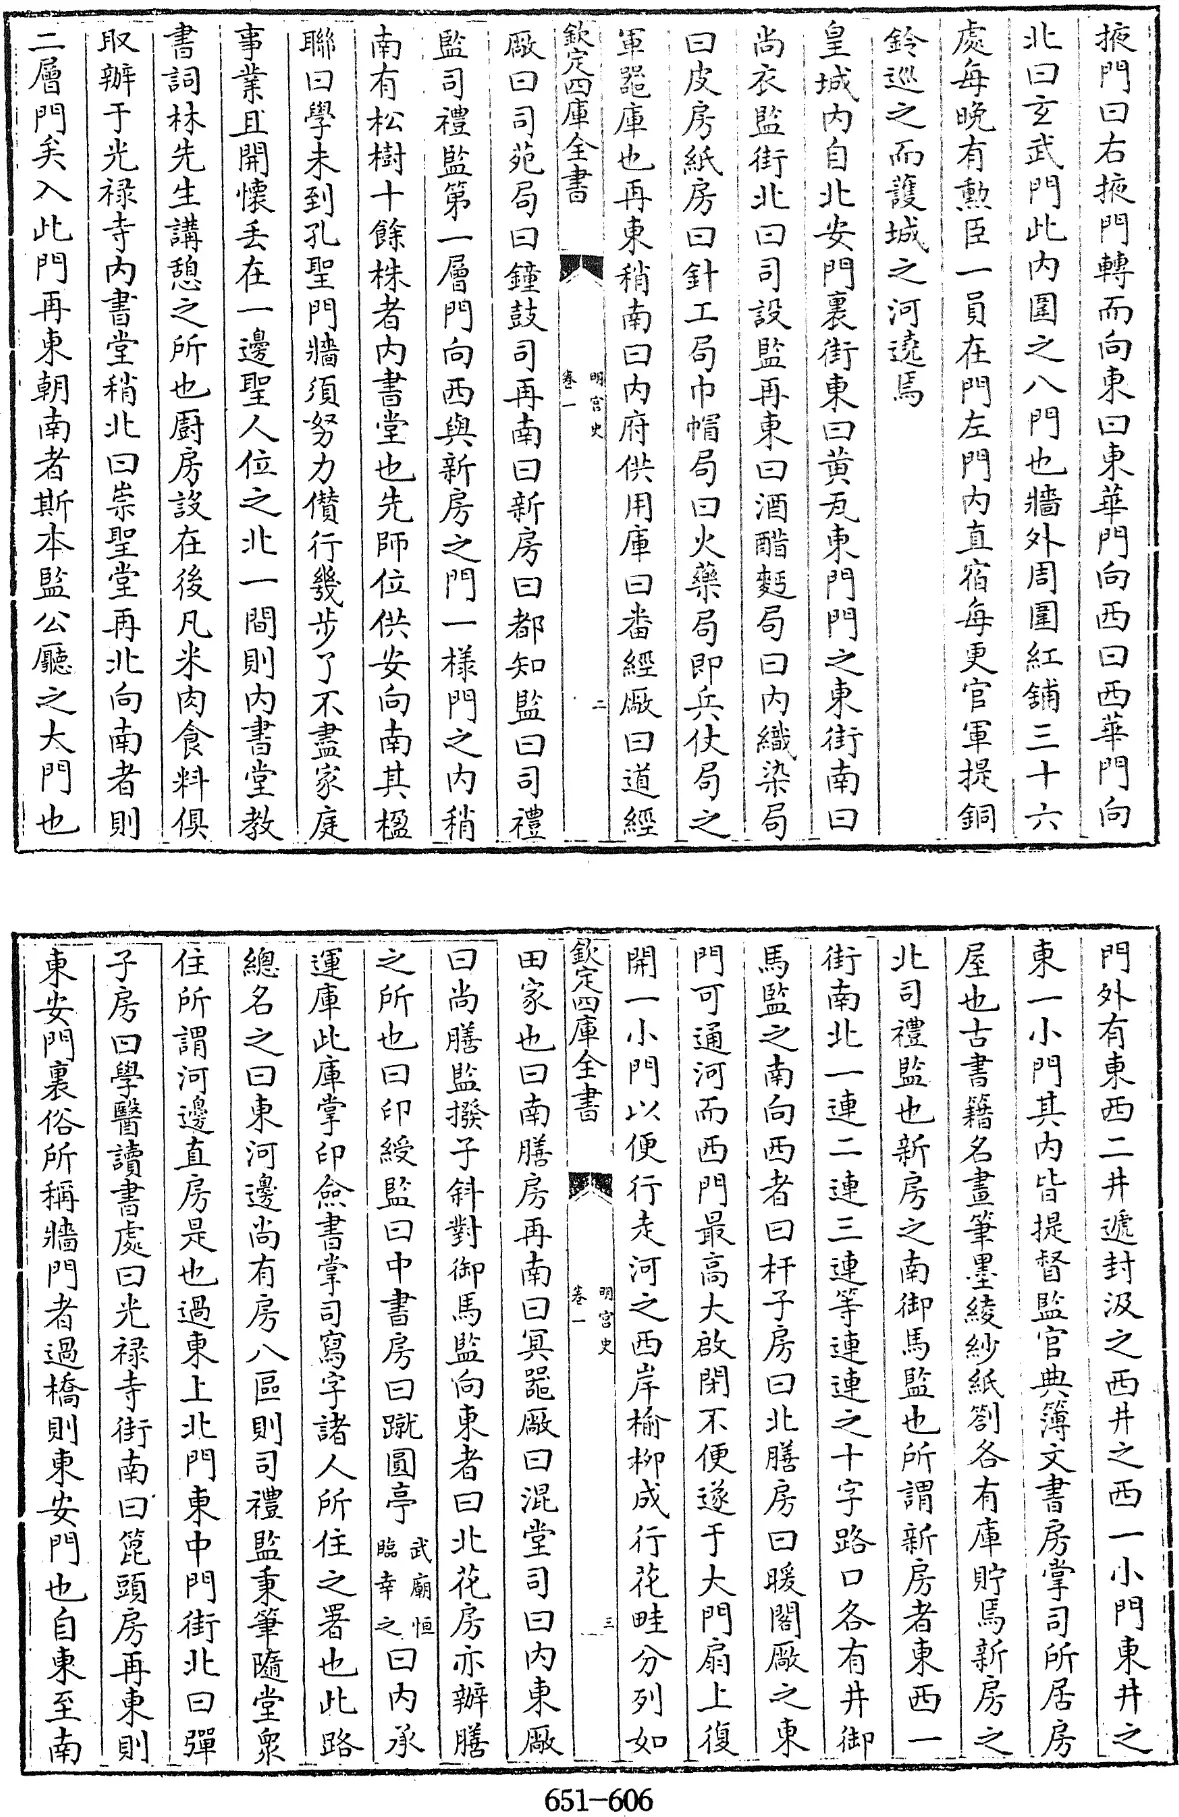 掖門曰右掖門轉而向東曰東華門向西曰西華門向
北曰玄武門此内圍之八門也牆外周圍紅舖三十六
處每晚有勲臣一員在門左門内直宿每更官軍提銅
鈴巡之而護城之河遶焉
皇城内自北安門裏街東曰黄瓦東門門之東街南曰
尚衣監街北曰司設監再東曰酒醋麪局曰内織染局
曰皮房紙房曰針工局巾帽局曰火藥局即兵仗局之
軍器庫也再東稍南曰内府供用庫曰番經厰曰道經
欽定四庫全書
明宮史
卷一
二
厰曰司苑局曰鐘鼓司再南曰新房曰都知監曰司禮
監司禮監第一層門向西與新房之門一様門之内稍
南有松樹十餘株者内書堂也先師位供安向南其楹
聯曰學未到孔聖門牆須努力儹行幾步了不盡家庭
事業且開懷丟在一邊聖人位之北一間則内書堂教
書詞林先生講憩之所也厨房設在後凡米肉食料俱
取辦于光禄寺内書堂稍北曰崇聖堂再北向南者則
二層門矣入此門再東朝南者斯本監公廳之大門也
門外有東西二井遞封汲之西井之西一小門東井之
東一小門其内皆提督監官典簿文書房掌司所居房
屋也古書籍名畫筆墨綾紗紙劄各有庫貯焉新房之
北司禮監也新房之南御馬監也所謂新房者東西一
街南北一連二連三連等連連之十字路口各有井御
馬監之南向西者曰杆子房曰北膳房曰暖閣厰之東
門可通河而西門最高大啟閉不便遂于大門扇上復
開一小門以便行走河之西岸榆栁成行花畦分列如
欽定四庫全書
明宮史
卷一
三
田家也曰南膳房再南曰冥器厰曰混堂司曰内東厰
曰尚膳監撥子斜對御馬監向東者曰北花房亦辦膳
之所也曰印綬監曰中書房曰蹴圓亭武廟恒臨幸之曰内承
運庫此庫掌印僉書掌司寫字諸人所住之署也此路
總名之曰東河邊尚有房八區則司禮監秉筆隨堂衆
住所謂河邊直房是也過東上北門東中門街北曰彈
子房曰學醫讀書處曰光禄寺街南曰箆頭房再東則
東安門裏俗所稱牆門者過橋則東安門也自東至南
651-606